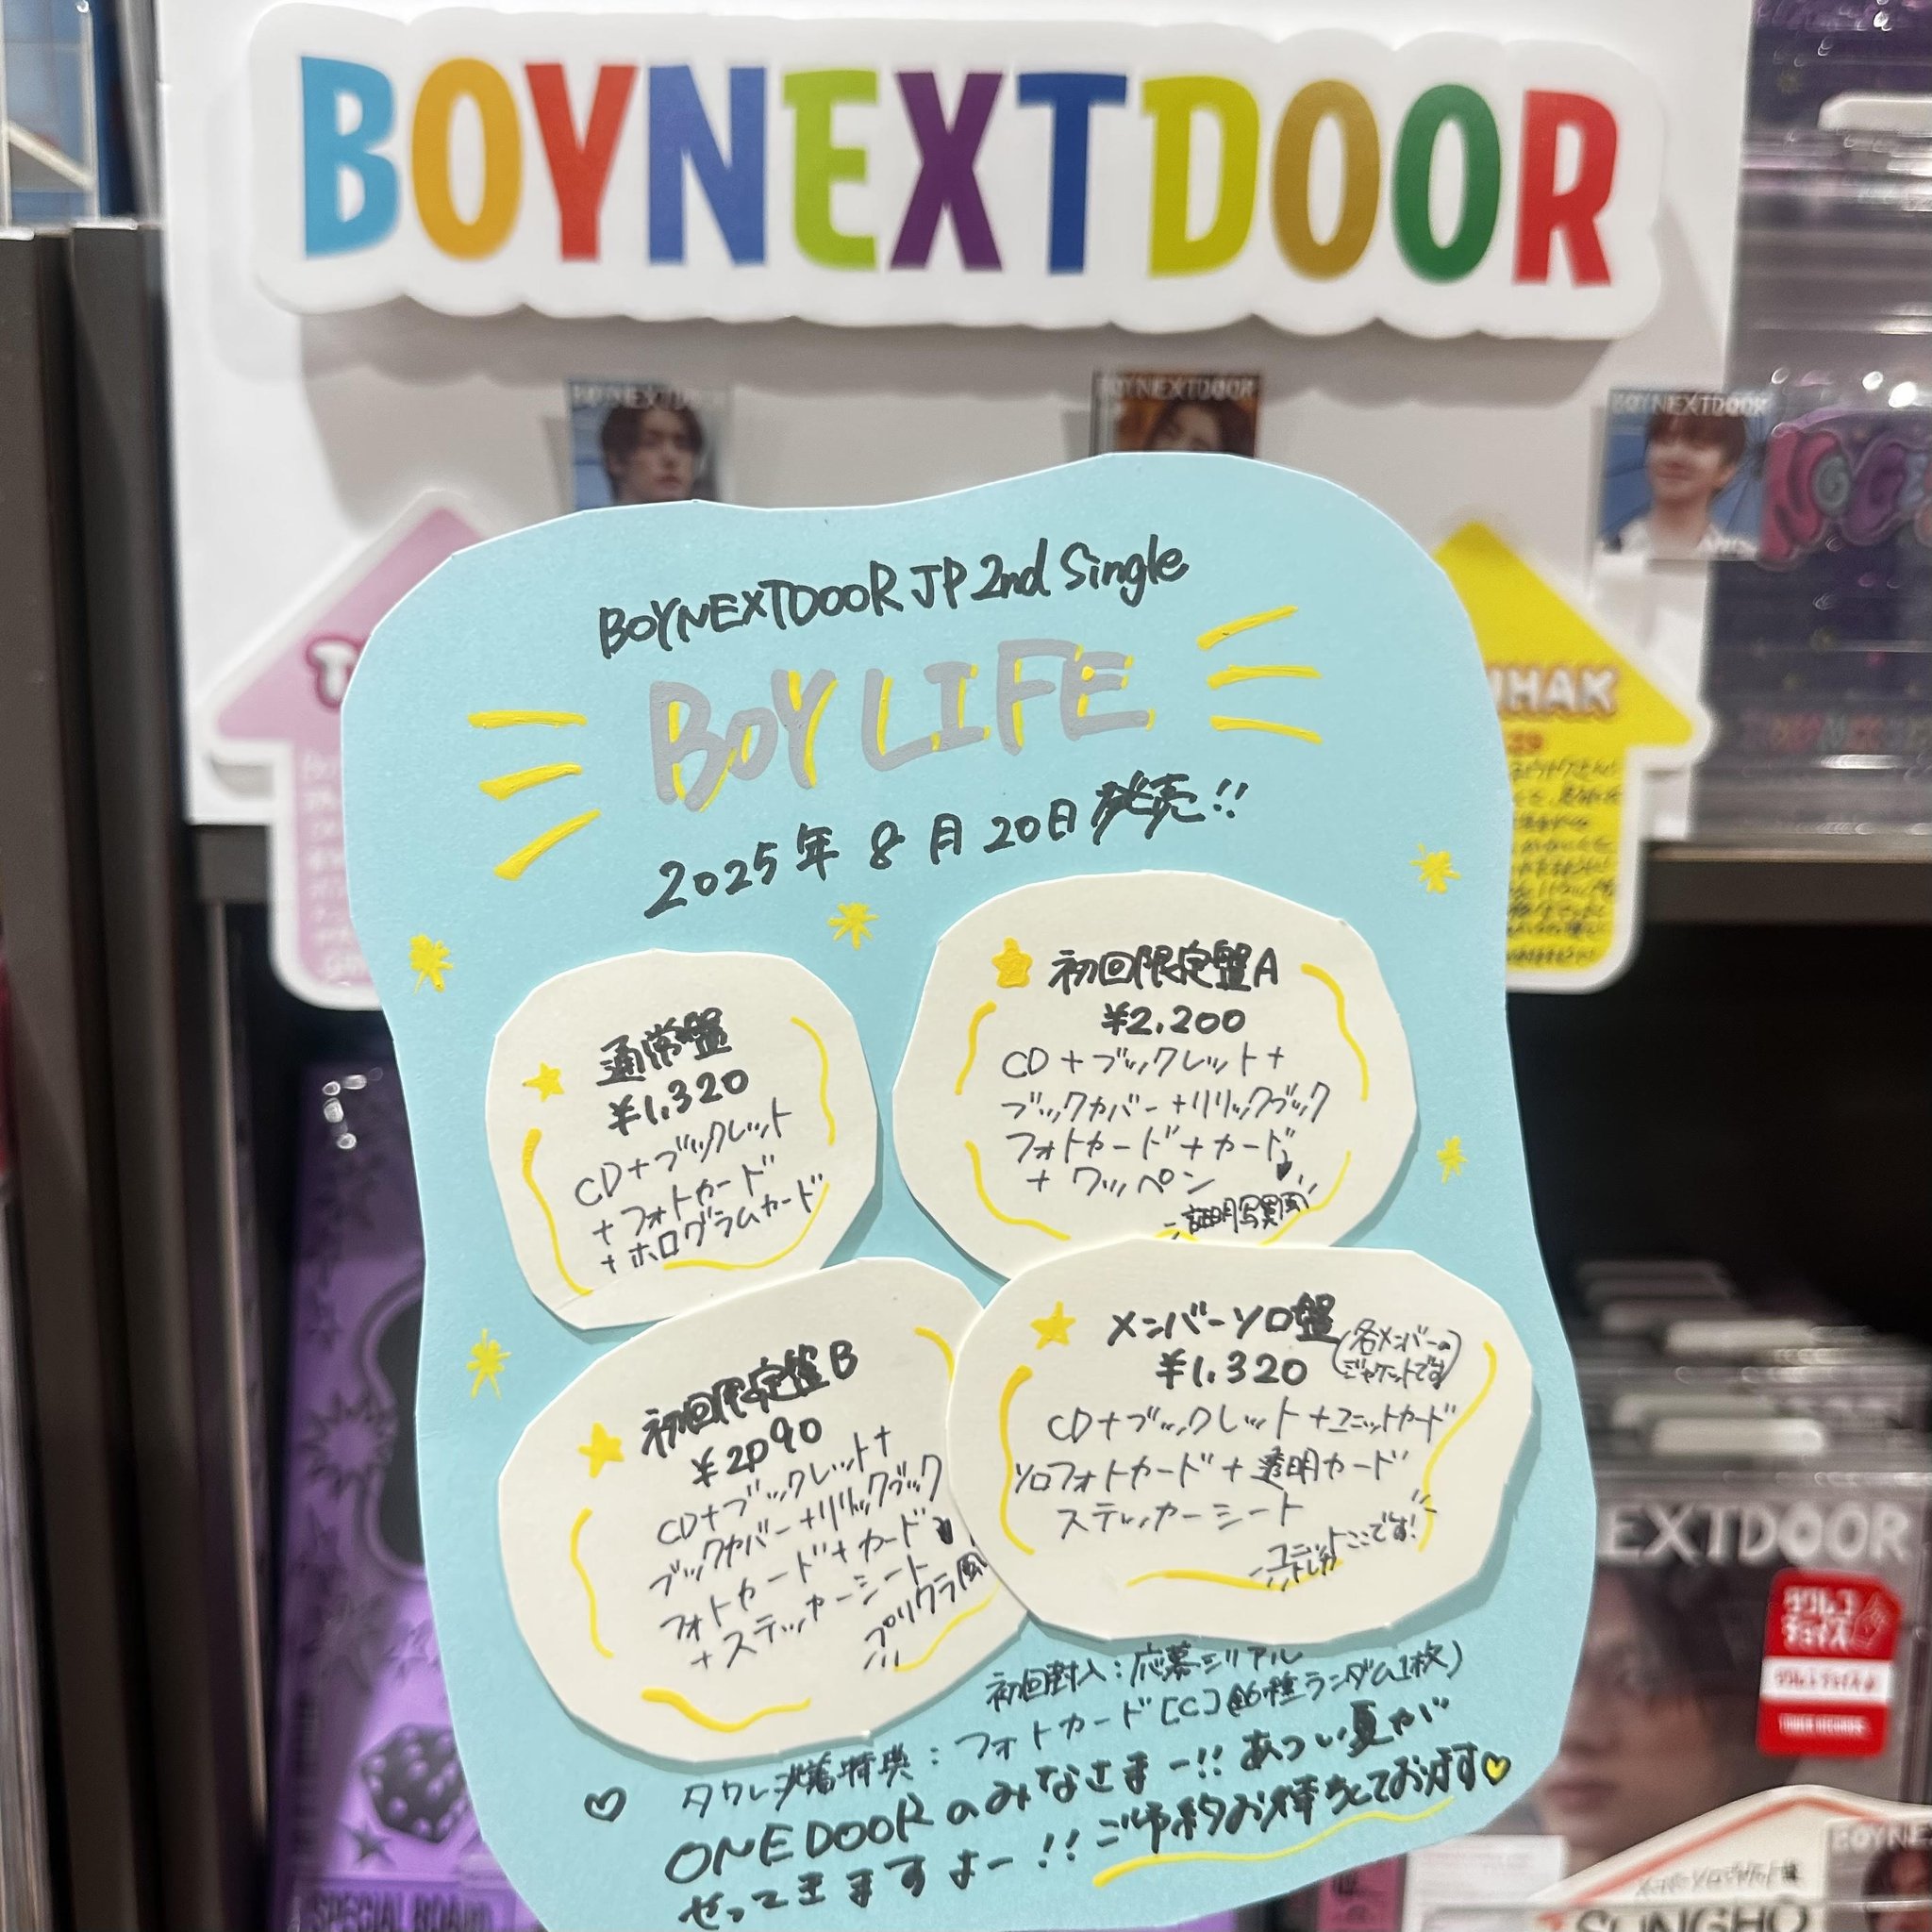 BOYNEXTDOOR
BOYNEXTDOOR
BOYNEXTDOOR
BOYNEXTDOOR
BOYNEXTDOOR JP 2nd Single
BOY LIFE
2025年8月20日発売!!
NHAK
通常盤
¥1,320
CD+ブックレット
+フォトカード
+ホログラムカード
初回限定盤A
¥2,200
CD+ブックレット+
ブックカバー+リリックブック
フォトカード+カード
+ワッペン
証明写真風
初回限定盤B
¥2090
CD+ブックレット+
ブックカバー+リリックブック
フォトカード+カード
+ステッカーシート
プリクラ風
メンバーソロ盤
(各メンバーの
ジャケットです)
¥1,320
CD+ブックレット+ユニットカード
ソロフォトカード+透明カード
ステッカーシート
ユニットトレカ ここです!
初回封入:応募シリアル
タワレコ先着特典:フォトカード[C](全6種ランダム1枚)
ONEDOORのみなさまー!!あつい夏が
やってきますよー!!ご予約お待ちしております♡
EXTDOOR
タワレコ
チョイス
TOWER RECORDS
SPECIAL BOARD
SUNGHO